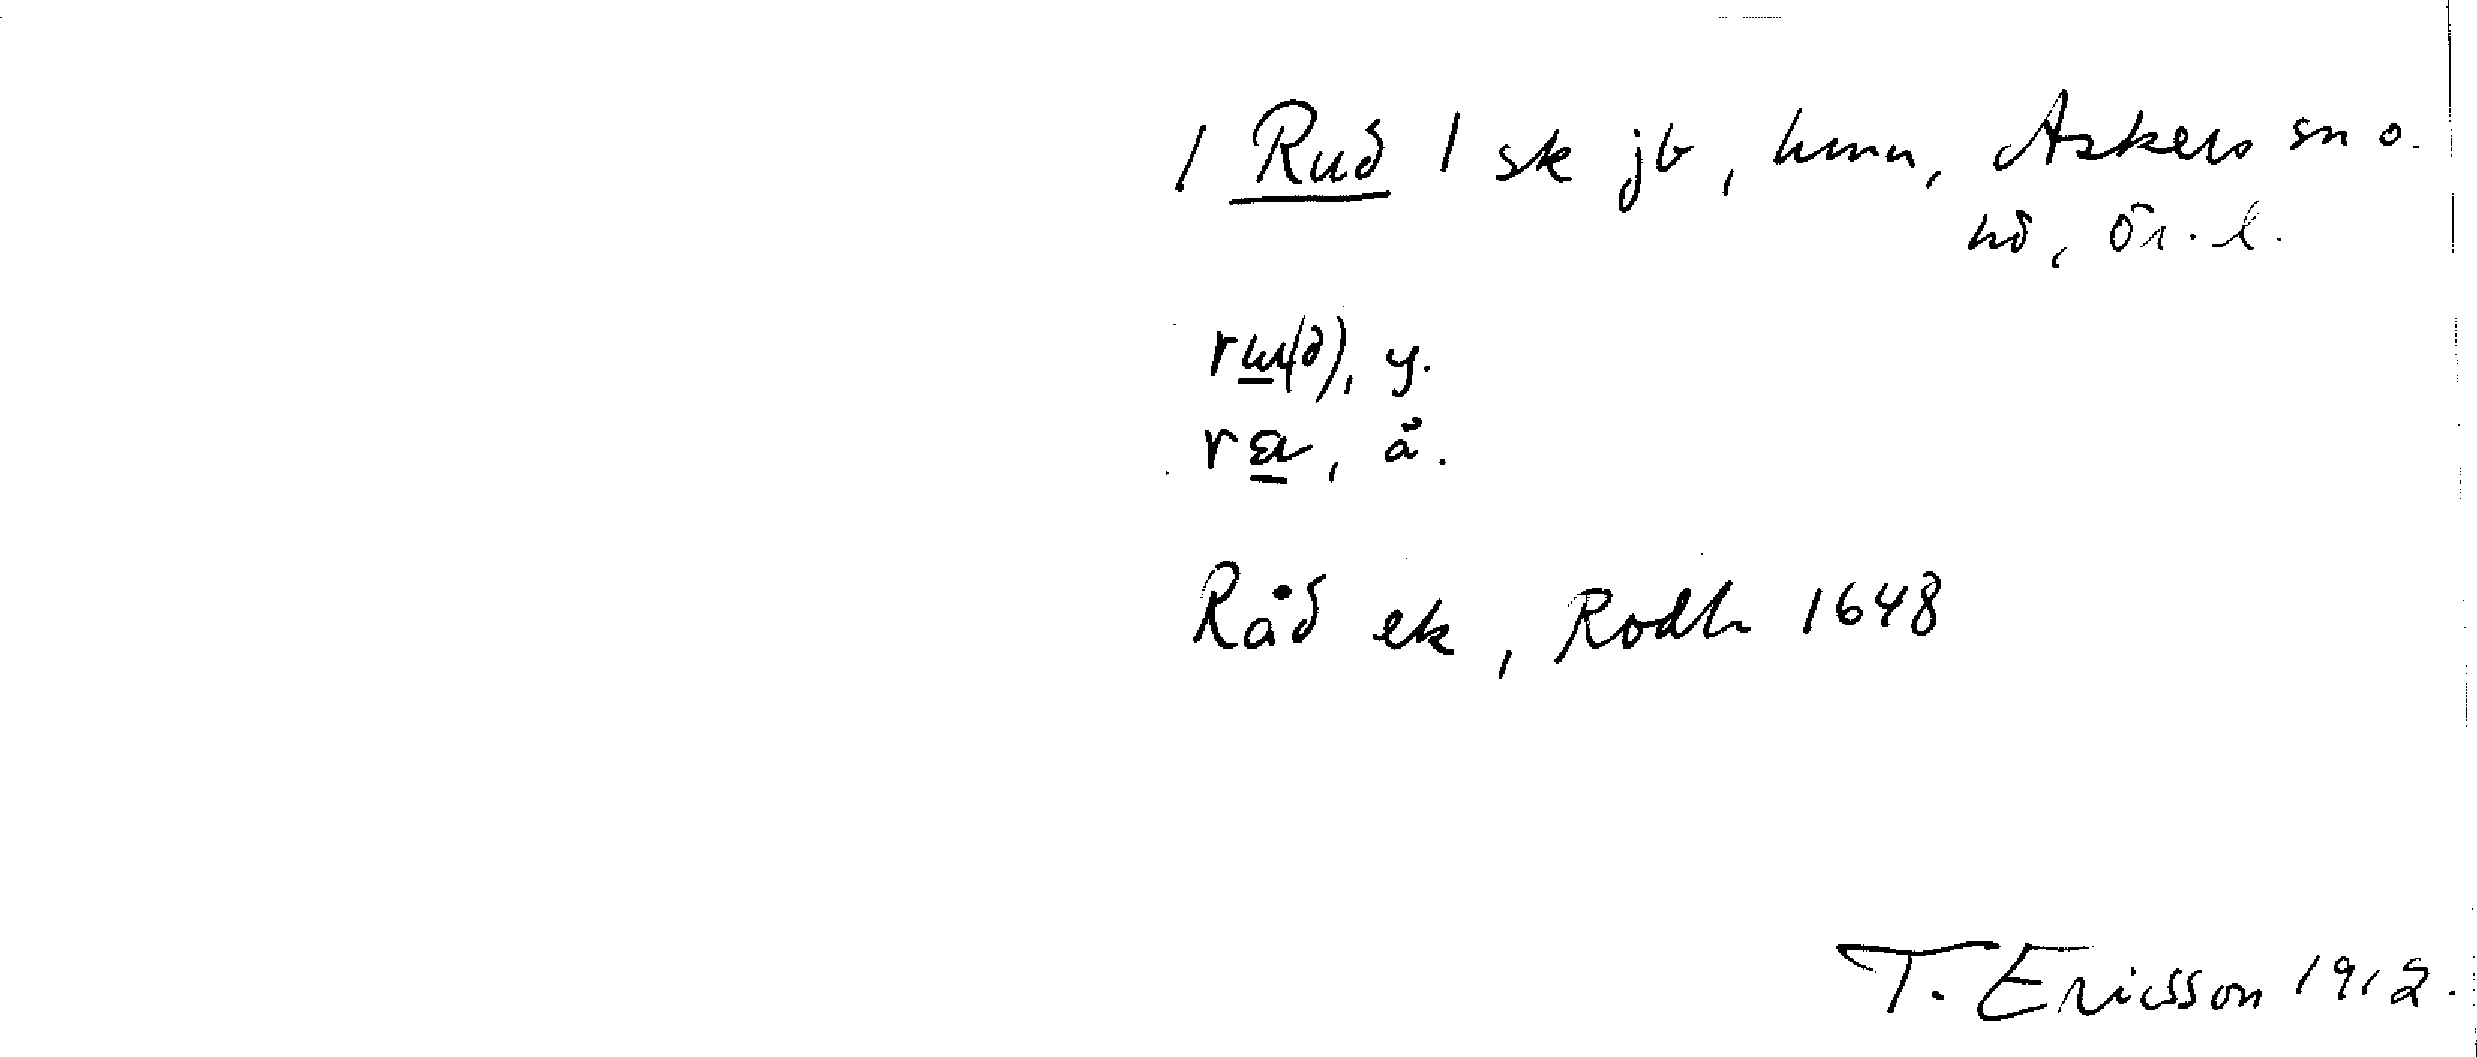 1 Rud 1 sk jb, hmn, Askers sn o.
hd, Ör. l.
rɯ(d), y.
, å.
Råd ek, Rodh 1648
T. Ericsson 1912.